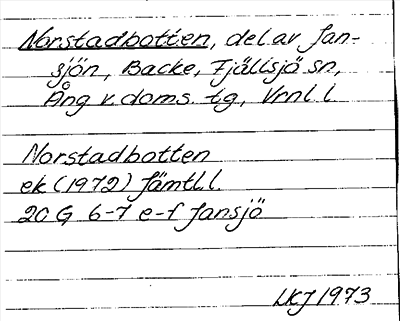 Norstadbotten, del av Jan-
sjön, Backe, Fjällsjö sn,
Ång v. doms. tg., Vrnl l
Norstadbotten
ek (1972) Jämtl l.
20 G 6-7 e-f Jansjö
1973